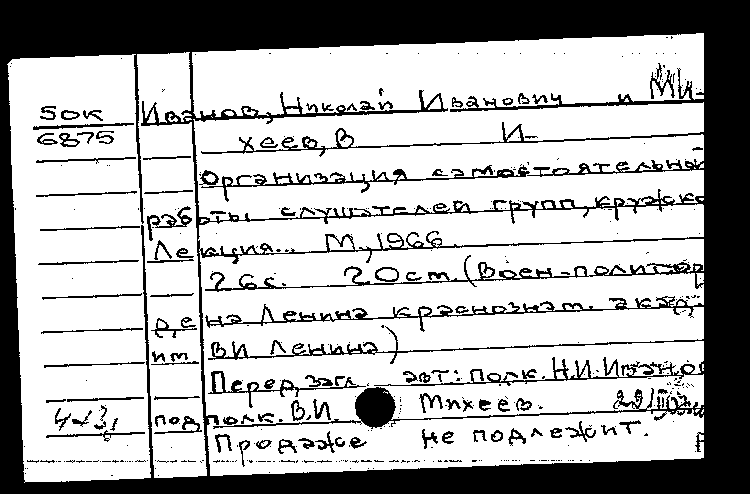 50К Иванов, Николай Иванович и Ми-
6875 хеев, В И-
Организация самостоятельной
работы слушателей групп, кружко
Лекция... М., 1966.
26с. 20см. (Воен-полит. ор
д, е на Ленина краснознам. акад.
им. ВИ Ленина)
Перед загл авт: полк. Н.И. Иванов
4-13, подполк. В.И. Михеев.
Продаже не подлежит.